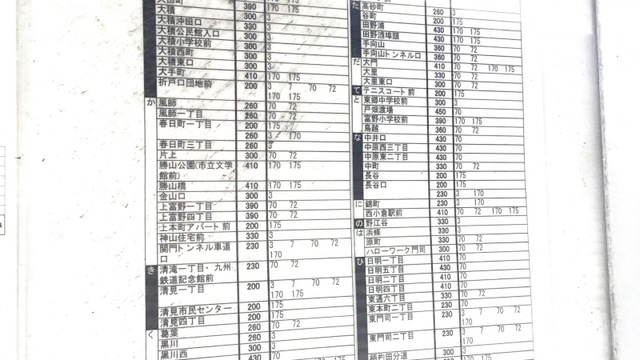 大積 390 170 175
大積沖田口 300 3
大積公民館入口 300 3
大積小学校前 300 3
大積西町 300 3
大積東口 300 3
大手町 410 170 175
折戸口団地前 200 3 7 70 72
170 175
か 風師 260 70 72
風師一丁目 260 70 72
春日町一丁目 200 175
260 3 170
春日町三丁目 260 3
片上 300 70 72
勝山公園(市立文学館前) 410 170 175
勝山橋 410 170 175
金山口 300 3
上富野一丁目 390 70 72
上富野四丁目 390 70 72
上本町アパート前 200 175
神山住宅前 330 3
関門トンネル車道口 230 3 7 70 72
170
き 清滝一丁目・九州鉄道記念館前 230 70 72
清見一丁目 200 3 7 70 72
170 175
清見市民センター 200 175
清見四丁目 200 175
く 葛葉 260 70 72
黒川 300 3
黒川西 300 3
た 高砂町 260 3
谷町 200 175
田野浦 350 175
田野浦埠頭 430 175
手向山 360 70 72
手向山トンネル口 360 70 72
だ 大門 410 70 72 170 175
大里 330 70 72
大里東口 330 70 72
て テニスコート前 200 175
と 東郷中学校前 300 3
戸畑渡場 450 70
富野小学校前 390 170 175
鳥越 360 70 72
な 中井口 430 70
中原西三丁目 450 70
中原東二丁目 430 70
中町 330 70 72
長谷 200 175
長谷口 200 175
230 3 170
に 錦町 230 3 170
西小倉駅前 410 70 72 170 175
の 野江谷 300 3
は 浜條 330 3
原町 330 70 72
ハローワーク門司 300 70 72
ひ 日明一丁目 410 70
日明五丁目 430 70
日明二丁目 410 70
日明四丁目 410 70
東通六丁目 330 70 72
東本町二丁目 230 70
東門司一丁目 230 3 7 70 72
170
東門司二丁目 230 3 7 70 72
170